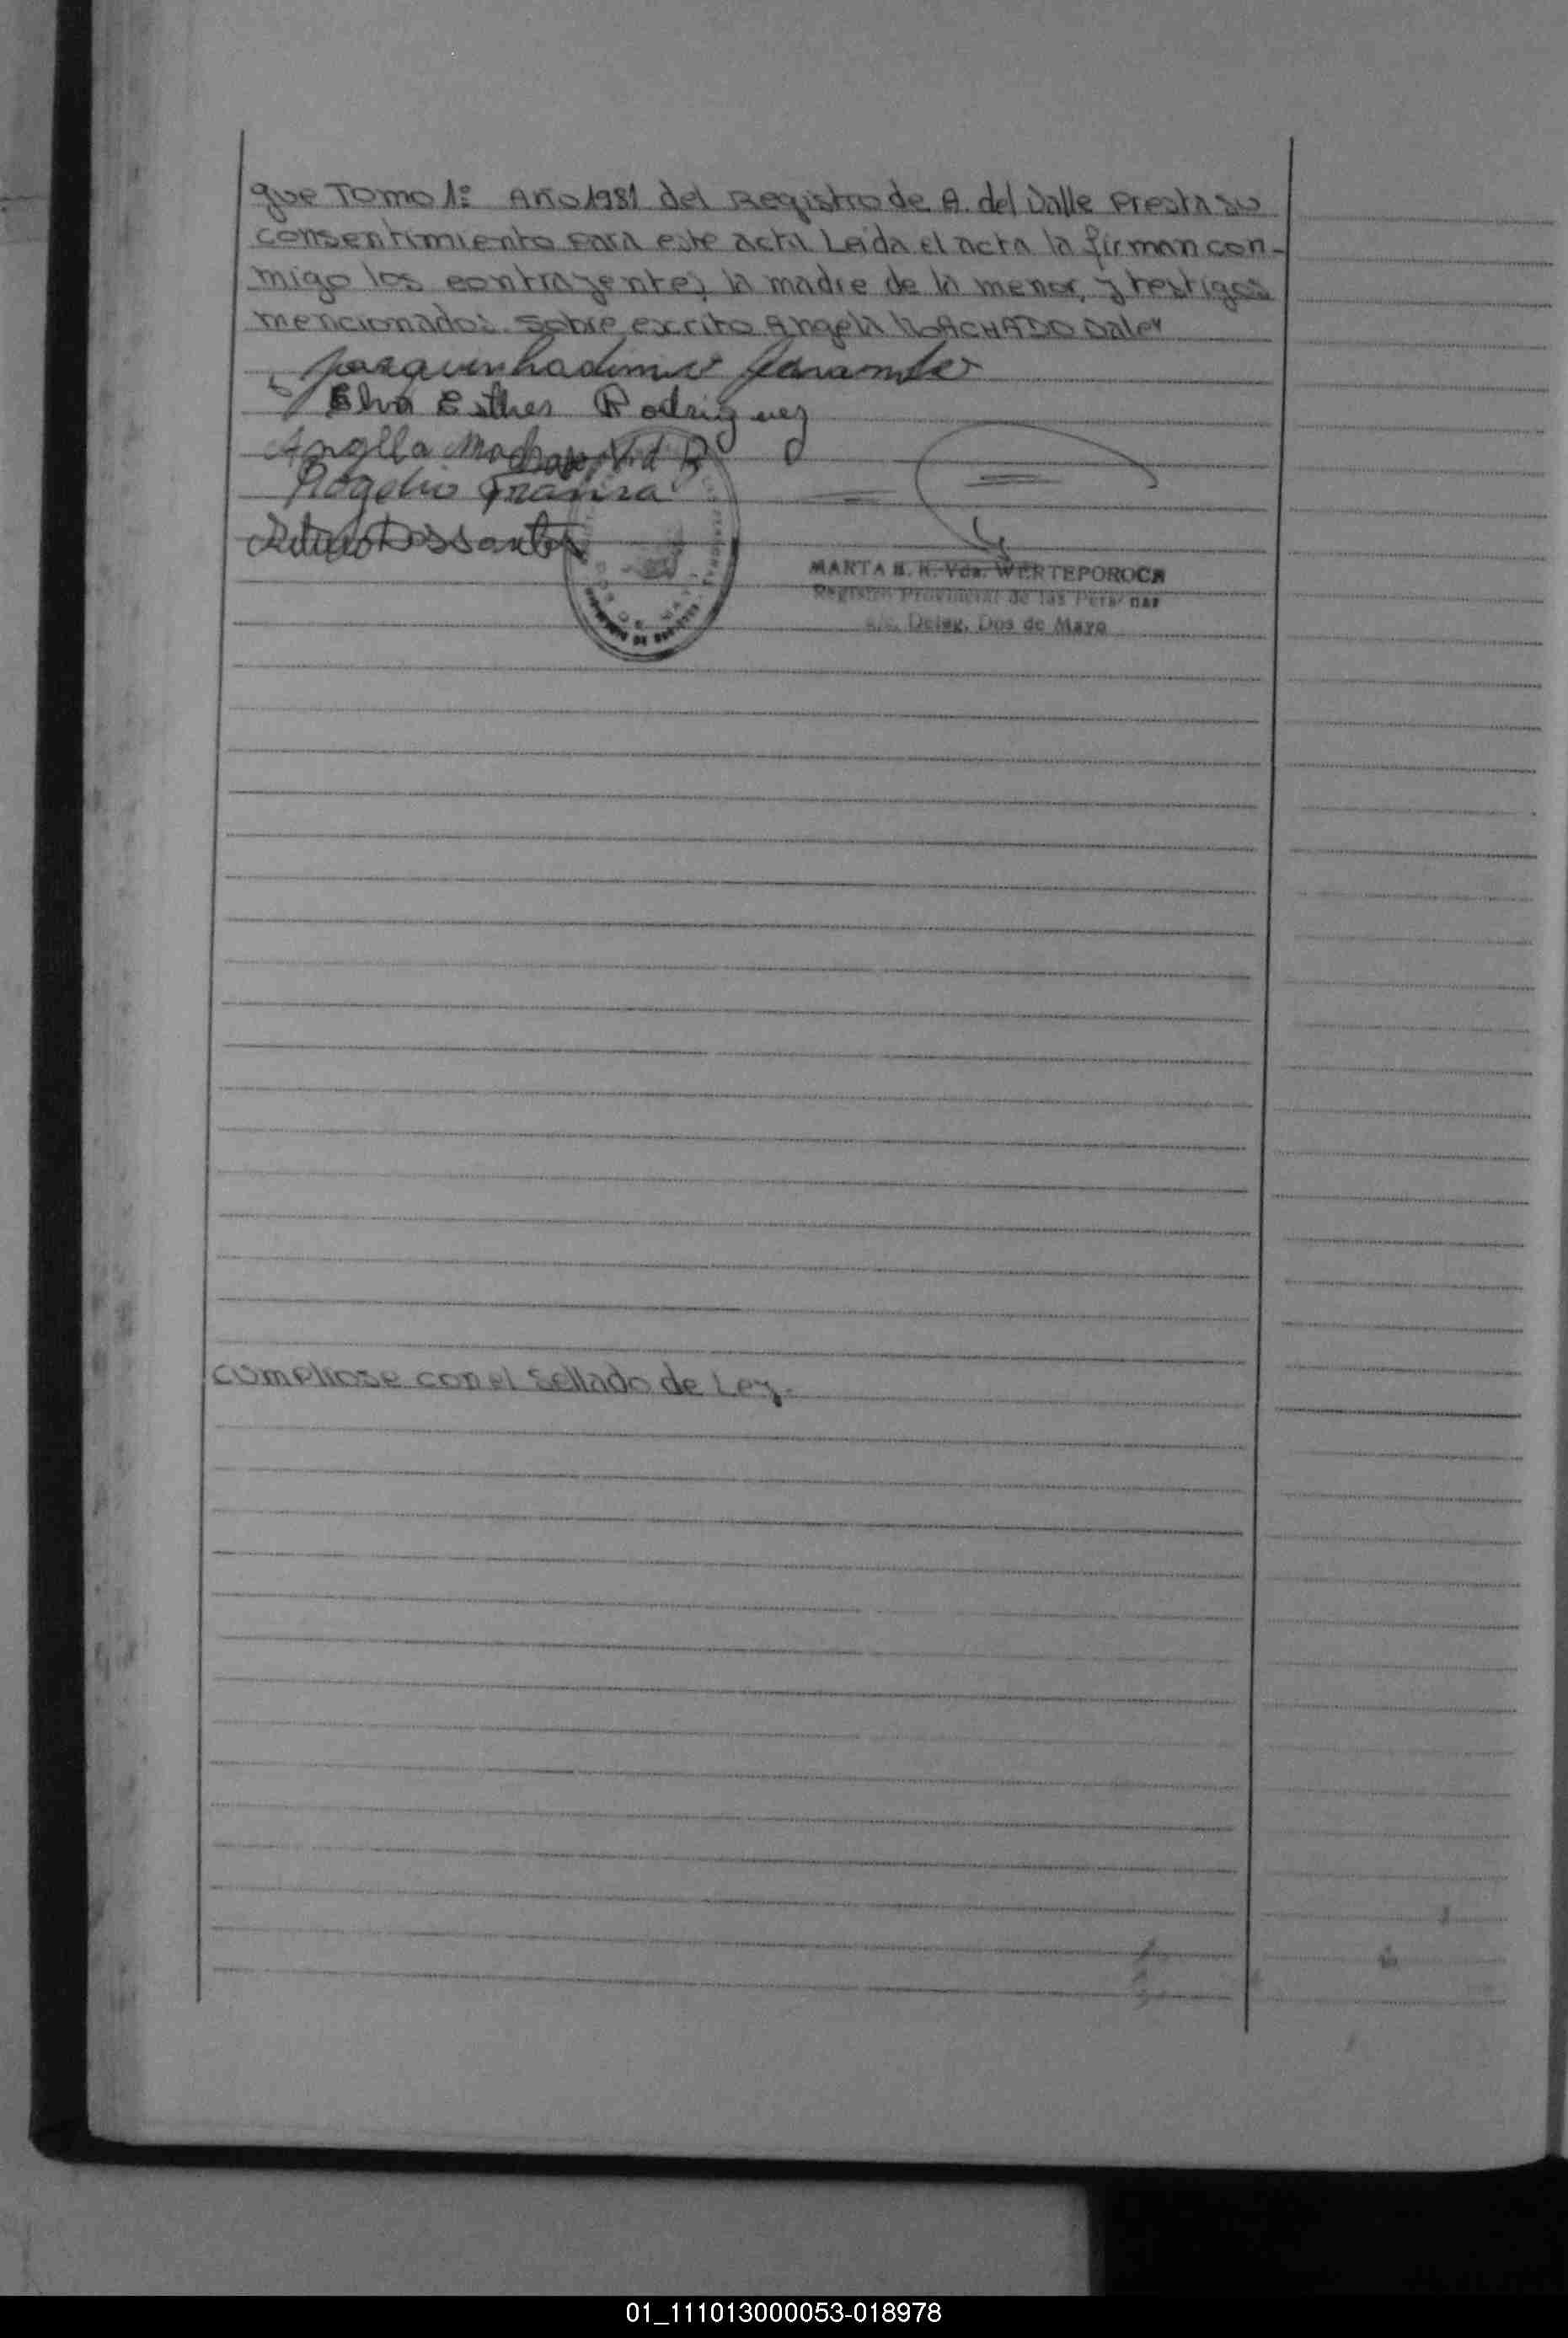 que Tomo 1º Año 1981 del Registro de A. del Valle Presta su
consentimiento para este acto. Leida el acta la firman con-
migo los contrayentes, la madre de la menor, y testigos
mencionados. Sobre escrito Angela MACHADO Vale
Elva Esther Rodriguez
Angela Machado Vid R
Rogelio Fransa
Dos santos
MARTA H. K. Vda. WERTEPOROCH
Registro Provincial de las Personas
a/c. Deleg. Dos de Mayo
DOS DE MAYO
Cumpliose con el Sellado de Ley.
01_111013000053-018978